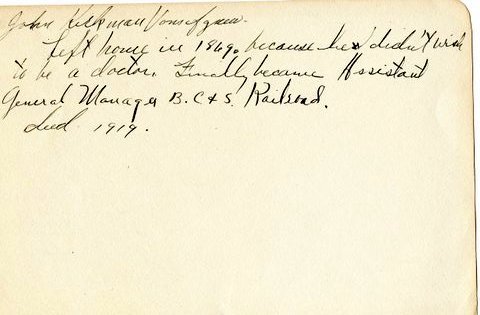 John Kirkman
left home in 1869. because he didn't wish
to be a doctor. Finally became Assistant
General Manager B. C & S. Railroad.
Died 1919.